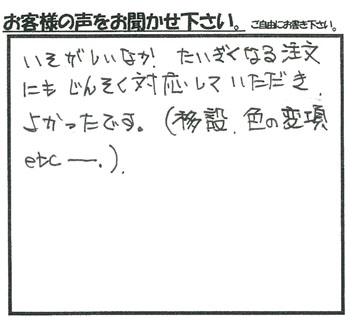 お客様の声をお聞かせ下さい。ご自由にお書き下さい。
いそがしいなか! たいぎくなる注文
にもじんそく対応していただき
よかったです。(移設、色の変項
etc ー.).